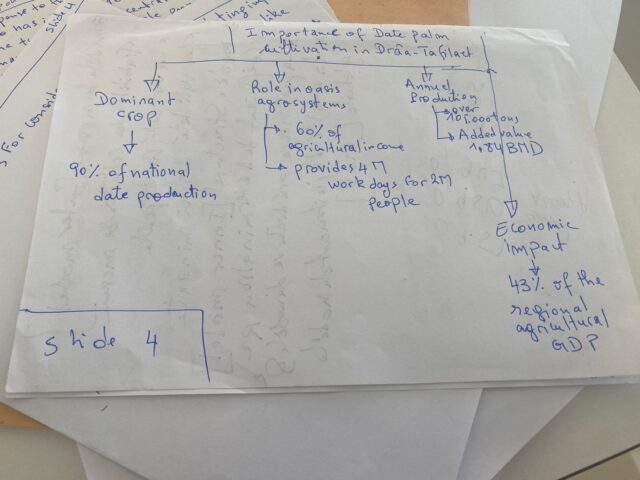 Importance of Date palm
cultivation in Drâa-Tafilalet
Dominant
crop
90% of national
date production
Role in oasis
agrosystems
60% of
agricultural income
provides 4 M
work days for 2M
people
Annuel
Production
over
Added value
1,84 BMD
Economic
impact
43% of the
regional
agricultural
GDP
Slide 4